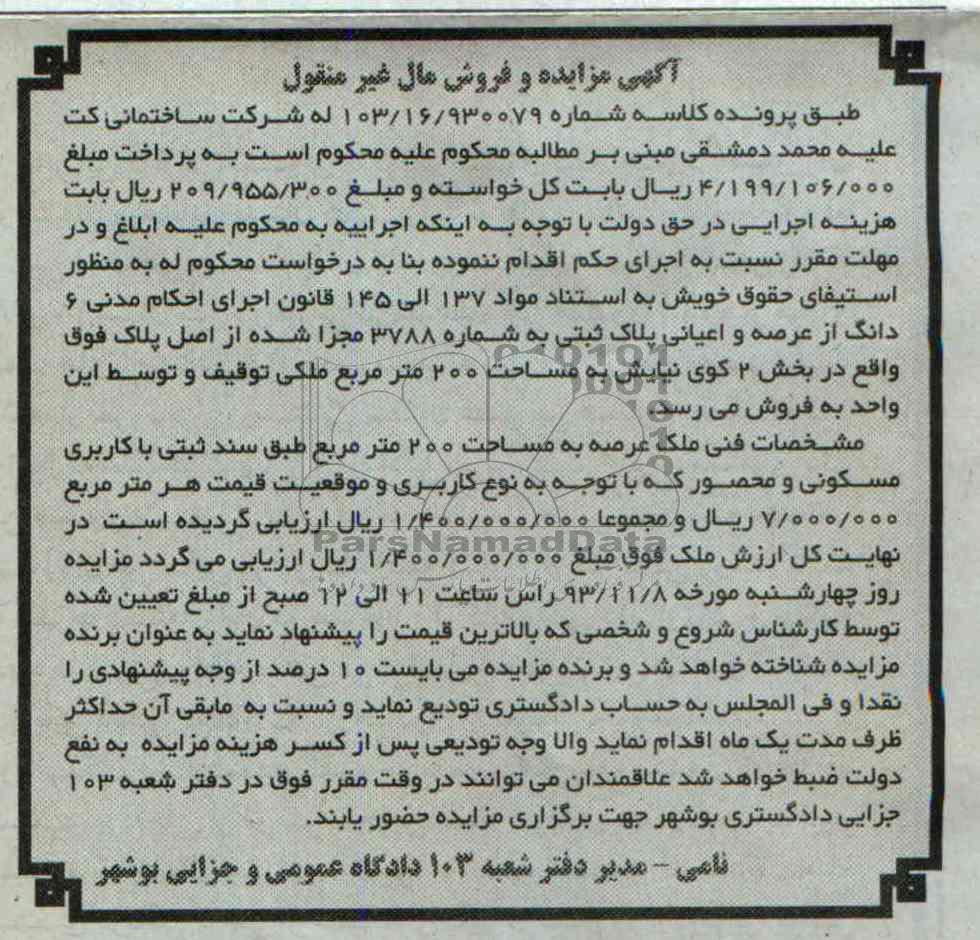 آگهی مزایده و فروش مال غیر منقول
طبق پرونده کلاسه شماره ۱۰۳/۱۶/۹۳۰۰۷۹ له شرکت ساختمانی کت
علیه محمد دمشقی مبنی بر مطالبه محکوم علیه محکوم است به پرداخت مبلغ
۴/۱۹۹/۱۰۶/۰۰۰ ریال بابت کل خواسته و مبلغ ۲۰۹/۹۵۵/۳۰۰ ریال بابت
هزینه اجرایی در حق دولت با توجه به اینکه اجراییه به محکوم علیه ابلاغ و در
مهلت مقرر نسبت به اجرای حکم اقدام ننموده بنا به درخواست محکوم له به منظور
استیفای حقوق خویش به استناد مواد ۱۳۷ الی ۱۴۵ قانون اجرای احکام مدنی ۶
دانگ از عرصه و اعیانی پلاک ثبتی به شماره ۳۷۸۸ مجزا شده از اصل پلاک فوق
واقع در بخش ۲ کوی نیایش به مساحت ۲۰۰ متر مربع ملکی توقیف و توسط این
واحد به فروش می رسد.
مشخصات فنی ملک عرصه به مساحت ۲۰۰ متر مربع طبق سند ثبتی با کاربری
مسکونی و محصور که با توجه به نوع کاربری و موقعیت قیمت هر متر مربع
۷/۰۰۰/۰۰۰ ریال و مجموعا ۱/۴۰۰/۰۰۰/۰۰۰ ریال ارزیابی گردیده است در
ParsNamadData
نهایت کل ارزش ملک فوق مبلغ ۱/۴۰۰/۰۰۰/۰۰۰ ریال ارزیابی می گردد مزایده
روز چهارشنبه مورخه ۹۳/۱۱/۸ راس ساعت ۱۱ الی ۱۲ صبح از مبلغ تعیین شده
توسط کارشناس شروع و شخصی که بالاترین قیمت را پیشنهاد نماید به عنوان برنده
مزایده شناخته خواهد شد و برنده مزایده می بایست ۱۰ درصد از وجه پیشنهادی را
نقدا و فی المجلس به حساب دادگستری تودیع نماید و نسبت به مابقی آن حداکثر
ظرف مدت یک ماه اقدام نماید والا وجه تودیعی پس از کسر هزینه مزایده به نفع
دولت ضبط خواهد شد علاقمندان می توانند در وقت مقرر فوق در دفتر شعبه ۱۰۳
جزایی دادگستری بوشهر جهت برگزاری مزایده حضور یابند.
نامی – مدیر دفتر شعبه ۱۰۳ دادگاه عمومی و جزایی بوشهر